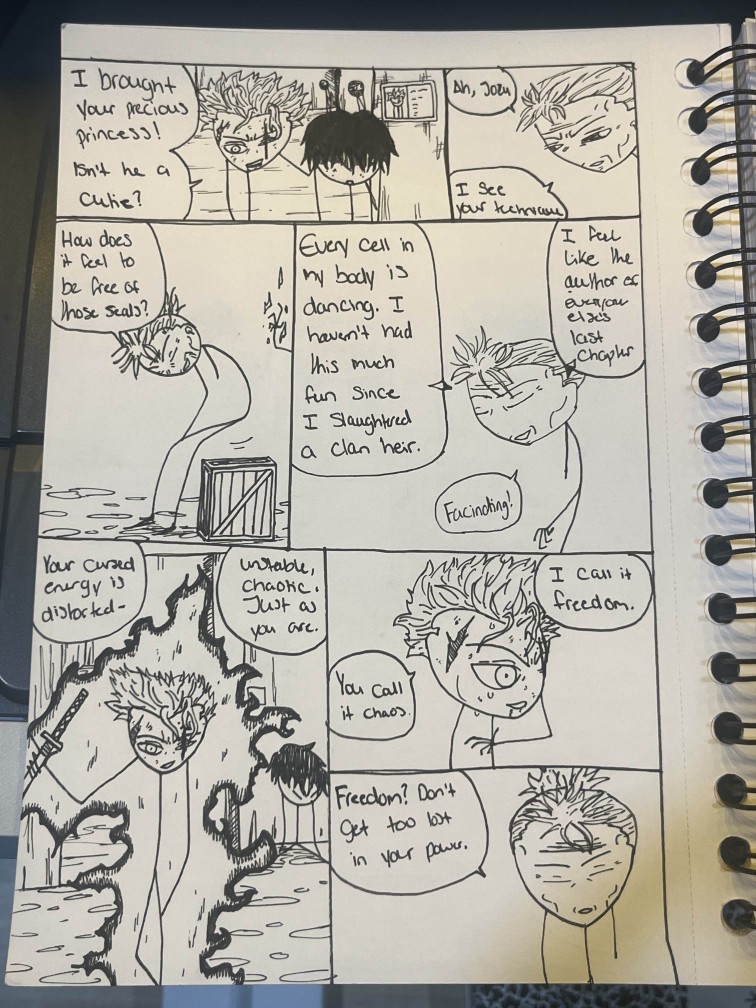 I brought
your precious
princess!
Isn't he a
cutie?
Ah, Jozu
I see
your technique
How does
it feel to
be free of
those seals?
Every cell in
my body is
dancing. I
haven't had
this much
fun since
I slaughtered
a clan heir.
I feel
like the
author of
everyone
else's
last
chapter
Facinating!
Your cursed
energy is
distorted-
unstable,
chaotic.
Just as
you are.
You call
it chaos.
I call it
freedom.
Freedom? Don't
get too lost
in your power.